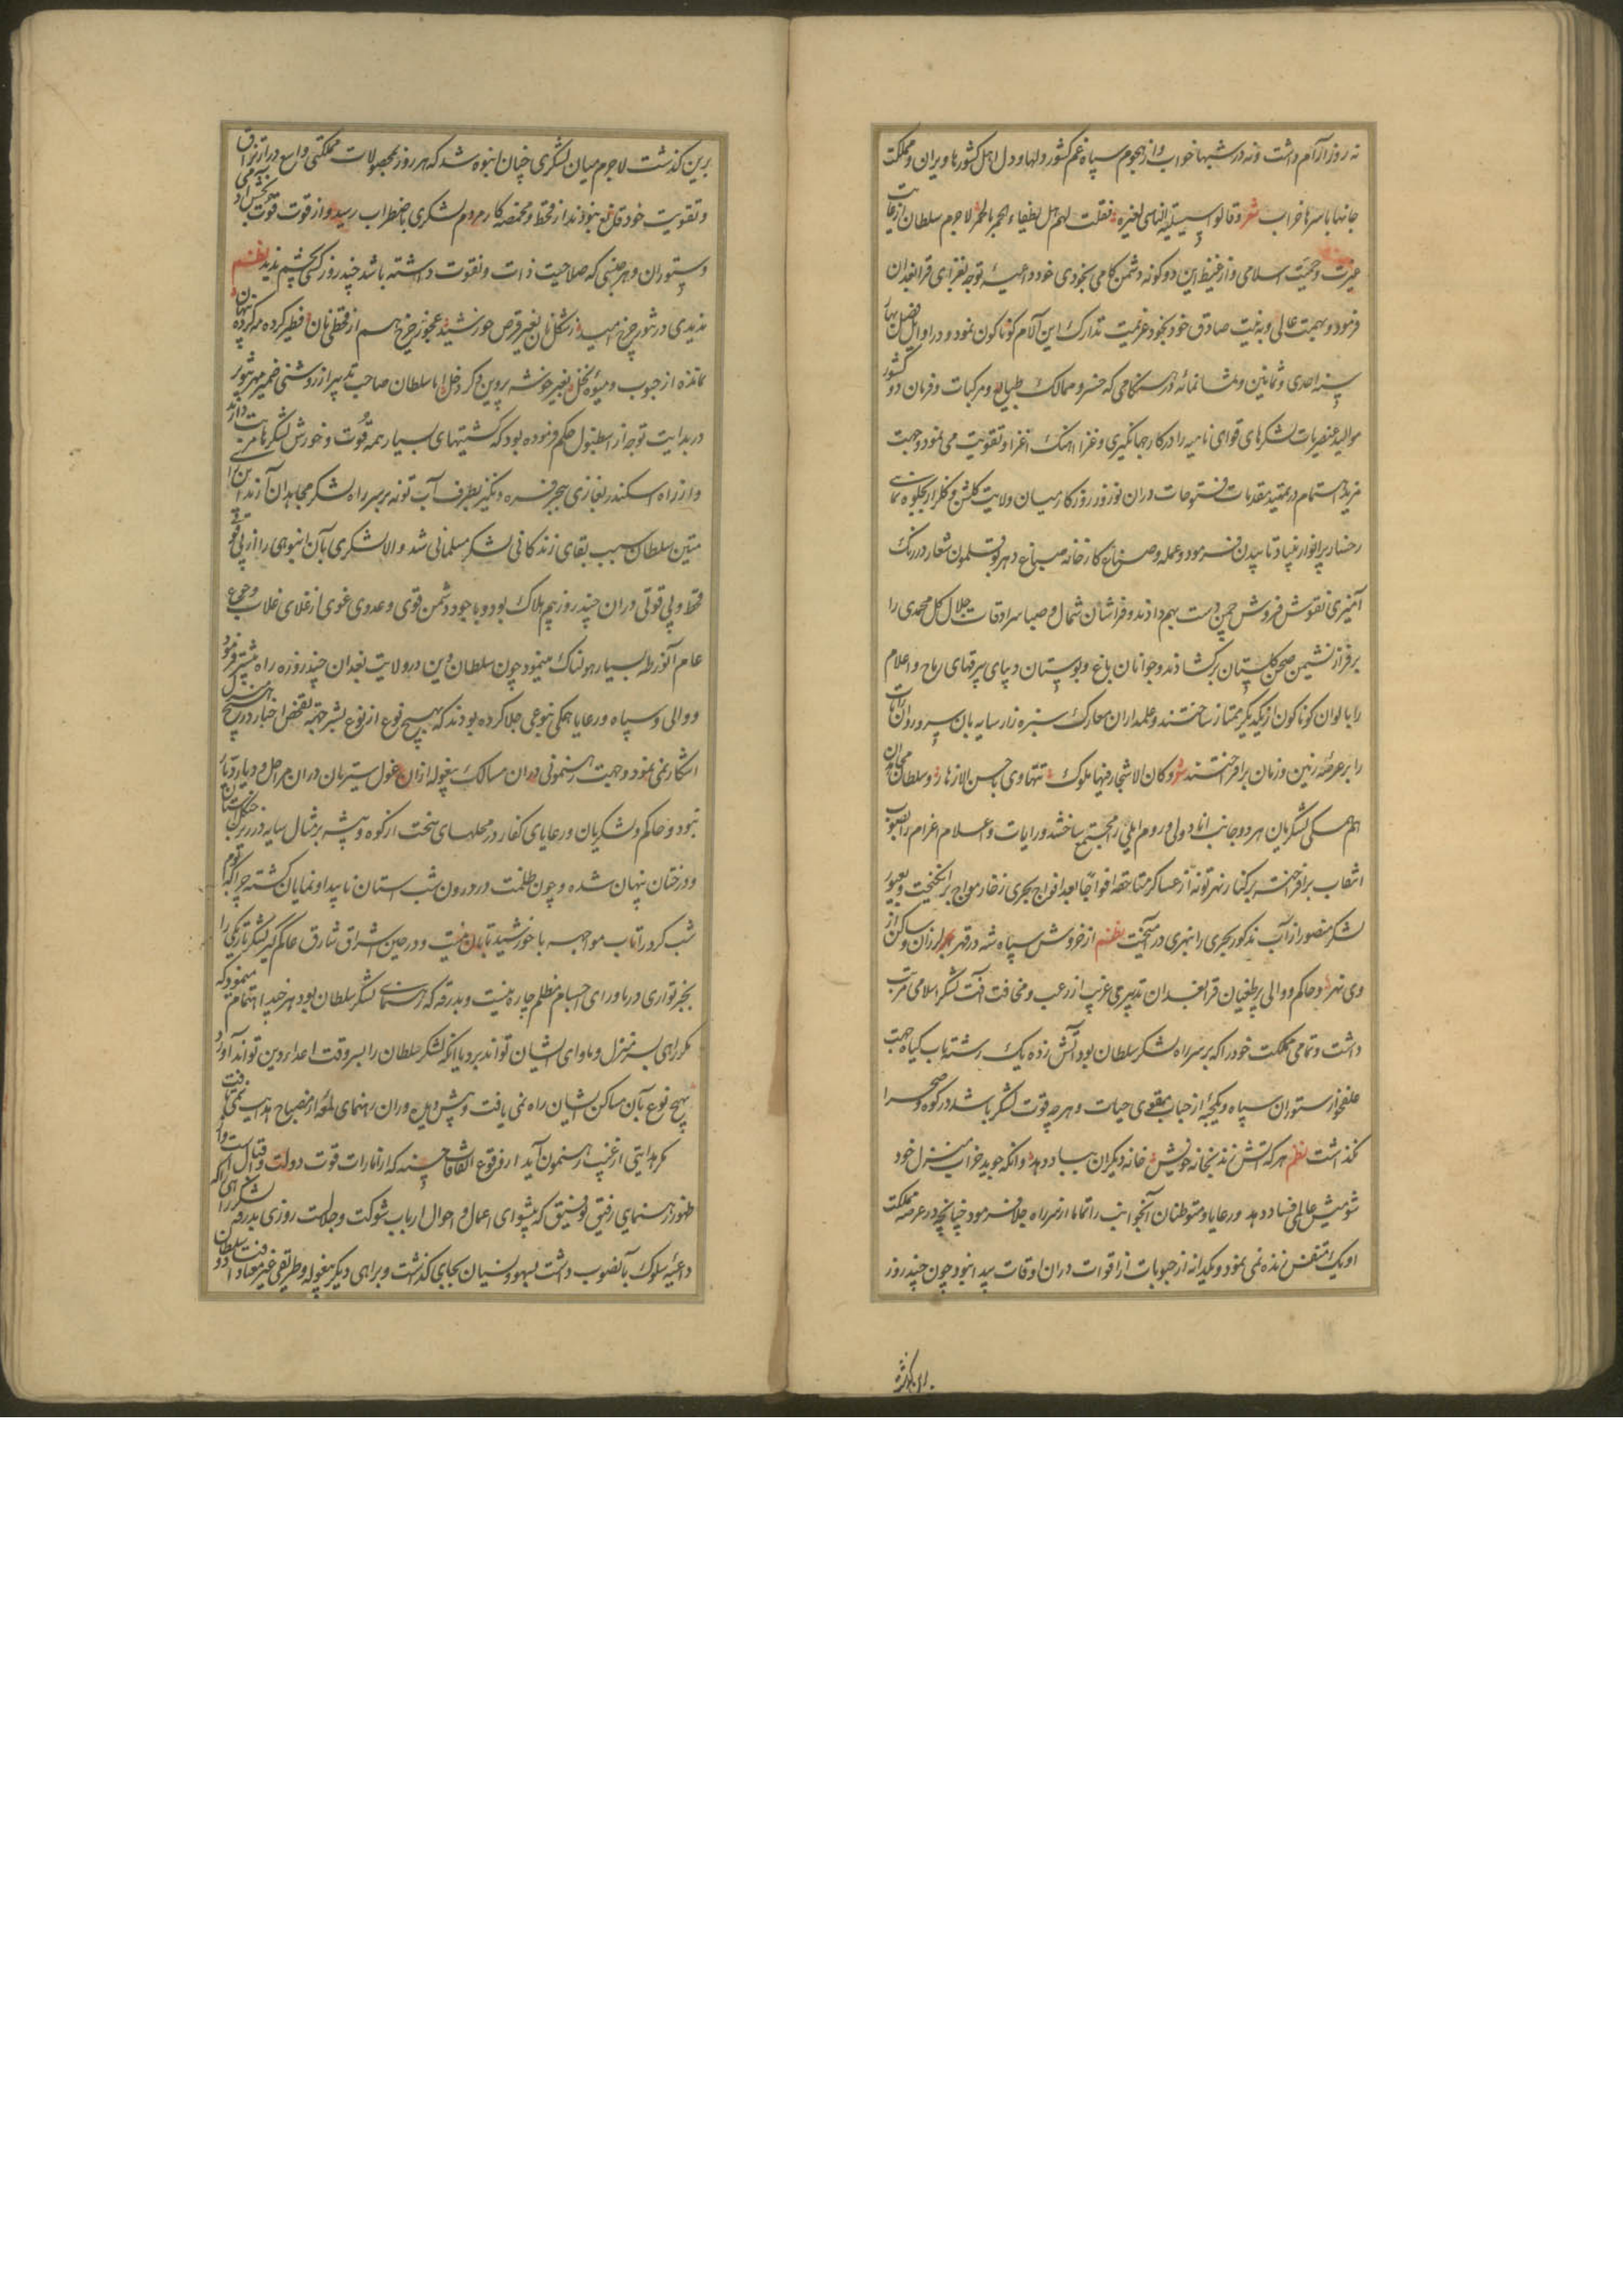 نه روز از آرام داشت و نه در شبها خواب و از هجوم سپاه غم کشور دلها و دل اهل کشورها ویران و مملکت
جانها با سرها خراب شعر و قالوا الناس لغیره فقلت لهم هل یطفاء الجمر بالجمر لاجرم سلطان از غایت
غیرت و حمیت اسلامی و از غیظ این دو کونه دشمن کامی بخودی خود داعیه توجه بغزای قرابغدان
فرمود و بهمت عالی و به نیت صادق خود بخود عزیمت تدارک این آلام کوناکون نمود و در اوایل فصل بهار
سنه احدی و ثمانین و ثمانمائه در هنکامی که خسرو ممالک طبایع و مرکبات و فرمان ده کشور
موالید عنصریات لشکرهای قوای نامیه را در کار جهانگیری و غزا اهنک اغزا و تقویت می نمود و جهت
مزید اهتمام در تمهید مقدمات فتوحات دران نوروز روزکار میان ولایت کلشن و کلزار بجلوه نمای
رخسار پر انوار بنیاد تابیدن فرمود و عمله و صناع کارخانه صباغ دهر بوقلمون شعار در رنک
آمیزی نقوش فروش چمن دست بهم دادند و فراشان شمال و صبا سرادقات جلال کل محمدی را
بر فراز نشیمن صحن کلستان برکشادند و جوانان باغ و بوستان دیبای بیرقهای ریاح و اعلام
را بالوان کوناکون از یکدیگر ممتاز ساختند و علمداران معارک سبزه زار سایه بان سرو روان رایات
را بر عرصه زمین و زمان برافراختند شعر و کان الاشجار فیها ملوک تتهاوی باحسن الازهار و سلطان مجاهدان
هم همکی لشکریان هر دو جانب انادولی و روم ایلی را مجتمع ساختند و رایات و اعلام اعزام را بصوب
انتقاب برافراخته بر کنار نهر تونه از عساکر متعاقبه افواجا بعد افواج بحری زخار مواج برانکیخت و بعبور
لشکر منصور از آب مذکور بحری را بنهری در آمیخت نظم از خروش سپاه شه در قهر بحر لرزان و ساکن از
وی نهر و حاکم و والی پر طغیان قرابغدان تدبیری غریب از رعب و مخافت آفت لشکر اسلامی مرتب
داشت و تمامی مملکت خود را که بر سر راه لشکر سلطان بود آتش زده یک رشته باب کیاه جهت
علفخوار ستوران سپاه و یکحبه از حباب مقوی حیات و هر چه قوت لشکر باشد در کوه و صحرا
نکذاشت نظم هر که آتش زند بخانه خویش خانه دیکران بباد دهد وانکه جوید خراب منزل خود
شومیش عالمی فساد دهد و رعایا و متوطنان آنجوانب را تماما از سر راه جلا فرمود چنانچه در عرصه مملکت
او یک متنفس زنده نمی نمود و یکدانه از حبوبات از اقوات دران اوقات پیدا نبود چون چند روز
برین کذشت لاجرم میان لشکری چنان انبوه شد که هر روز بمحصولات مملکتی واسع در ارتزاق
و تقویت خود قانع نبودند از قحط و مخمصه کار مردم لشکری باضطراب رسید و از قوت قوت
و ستوران و هر جنسی که صلاحیت ذات و نقوت داشته باشد چند روز کسی بچشم ندید نظم
ندیدی در شور چرخ امید ز شکل نان بغیر قرص خورشید عجوز چرخ هم از قحطی نان فطیر کرده مه کرده پنهان
نمانده از حبوب و میوه نخل بغیر خوشه پروین دکر دخل اما سلطان صاحب تدبیر از روشنی ضمیر مهر تنویر
در بدایت توجه از اسطنبول حکم فرموده بود که کشتیهای بسیار همه قوت و خورش لشکر
و از راه اسکندر بغازی ببحر قره دنکیز بطرف آب تونه بر سر راه لشکر مجاهدان آرند این
متین سلطان سبب بقای زندکانی لشکر مسلمانی شد و الا لشکری بآن انبوهی را از بی قوتی
قحط و بی قوتی دران چند روز بیم هلاک بود و با وجود دشمن قوی و عدوی غوی از غلای غلات و جوع
عام آنورطه بسیار هولناک مینمود چون سلطان دین در ولایت بغدان چند روزه راه پیشتر فرمود
و والی و سپاه و رعایا همکی بنوعی جلا کرده بودند که بهیچ نوع از نوع بشر جهة تفحص اخبار در هیچ منزل
اشکار نمی نمود و جهت رهنمونی دران مسالک بیغوله ازان غول سیرتان دران مراحل و دیار دیار
نبود و حاکم و لشکریان و رعایای کفار در محلهای سخت از کوه و بیشه بر مثال سایه در زیر
و درختان پنهان شده و چون ظلمت در درون شبستان ناپیدا و نمایان کشته چرا که قوم
شب کرد را تاب مواجهه با خورشید تابان نیست و در حین اشراق شارق عالمگیر لشکر تاریکی را
بجز تواری در ماورای اجسام مظلم چاره نیست و بدرقه که رهنمای لشکر سلطان بود هر چند اهتمام مینمود که
مکر راهی بسر منزل و ماوای ایشان تواند برد یا انکه لشکر سلطان را بسر وقت اعداء دین تواند آورد
بهیچ نوع بآن مساکن ایشان راه نمی یافت و پیش و پس دوران رهنمای لمعه از مصباح هدایت نمی تافت
مکر هدایتی از غیب رهنمون آید از وقوع اتفاقات حسنه که از امارات قوت دولت و اقبال است و از
ظهور رهنمای رفیق توفیق که پیشوای اعمال و احوال ارباب شوکت و جلالت روزی بدرقه لشکر را
داعیه سلوک بآنصوب داشت بسهو و نسیان بجایی کذشت و براهی دیگر بیغوله و طریقی غیر معتاد